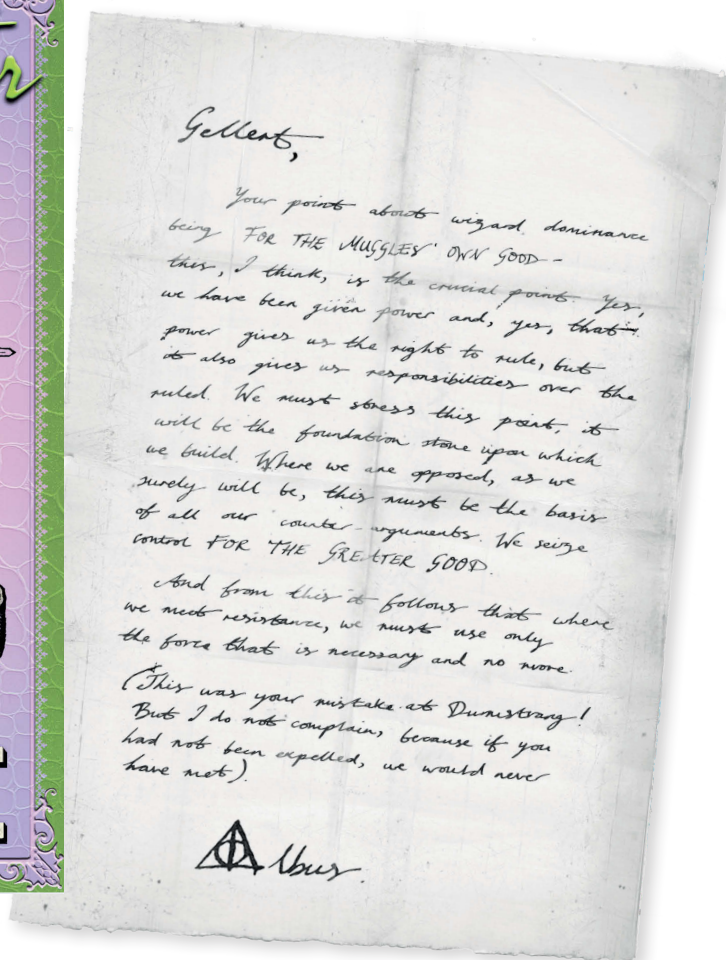 Gellert,
Your point about wizard dominance
being FOR THE MUGGLES' OWN GOOD –
this, I think, is the crucial point. Yes,
we have been given power and, yes, that
power gives us the right to rule, but
it also gives us responsibilities over the
ruled. We must stress this point, it
will be the foundation stone upon which
we build. Where we are opposed, as we
surely will be, this must be the basis
of all our counter-arguments. We seize
control FOR THE GREATER GOOD.
And from this it follows that where
we meet resistance, we must use only
the force that is necessary and no more.
(This was your mistake at Durmstrang!
But I do not complain, because if you
had not been expelled, we would never
have met).
Albus.